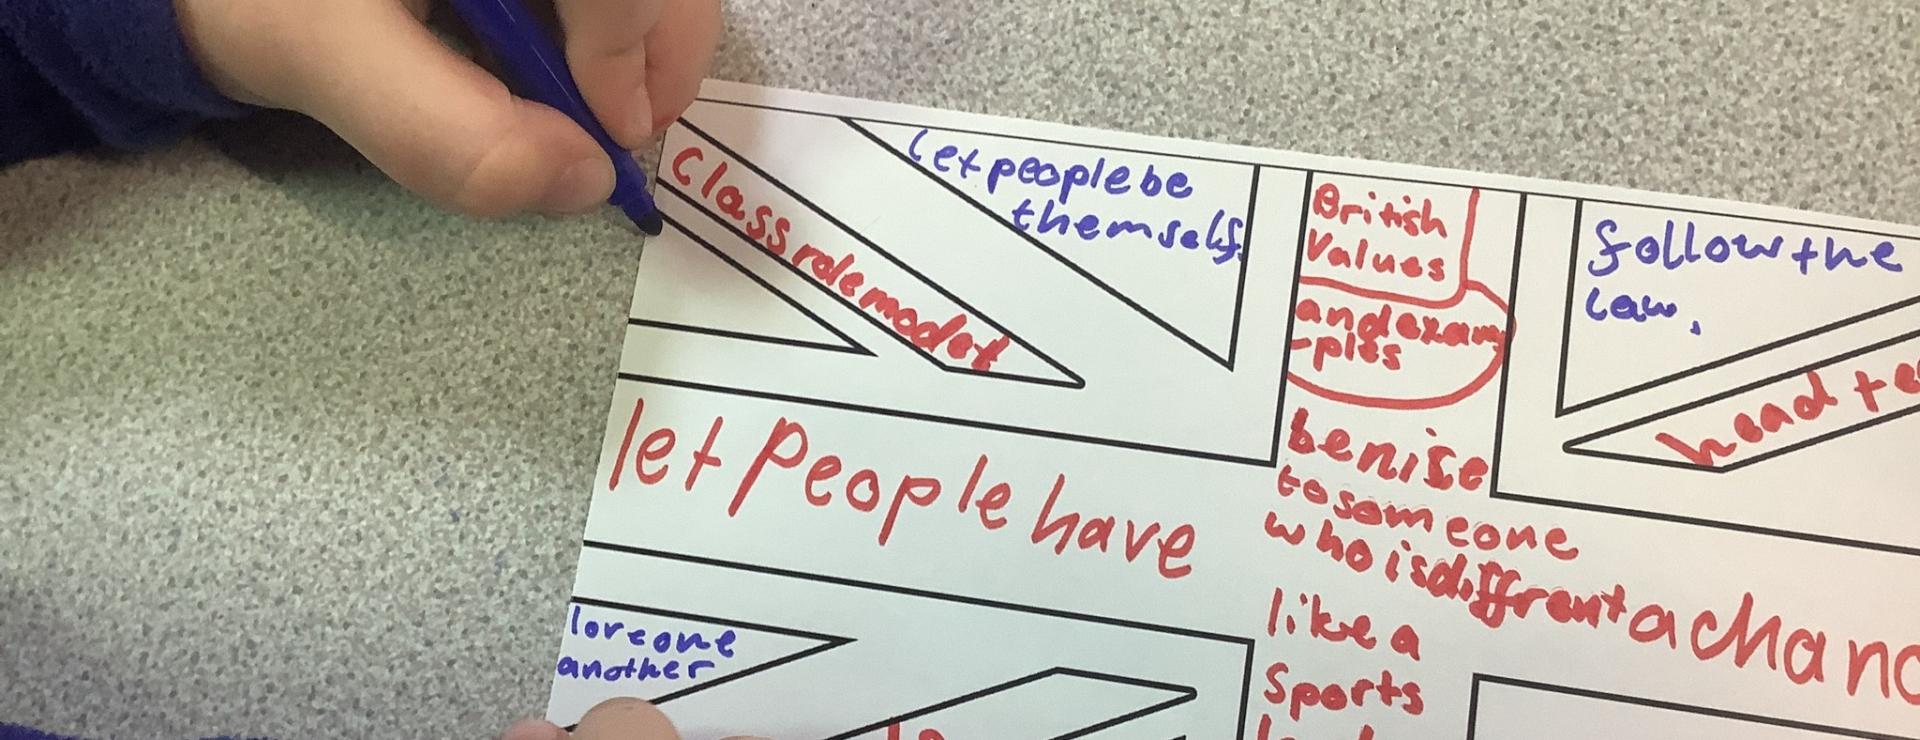 Class role model
let people be
themself.
British
Values
and exam
-ples
follow the
law.
head
let People have
a chanc
be nise
to someone
who is diffrent
like a
Sports
love one
another